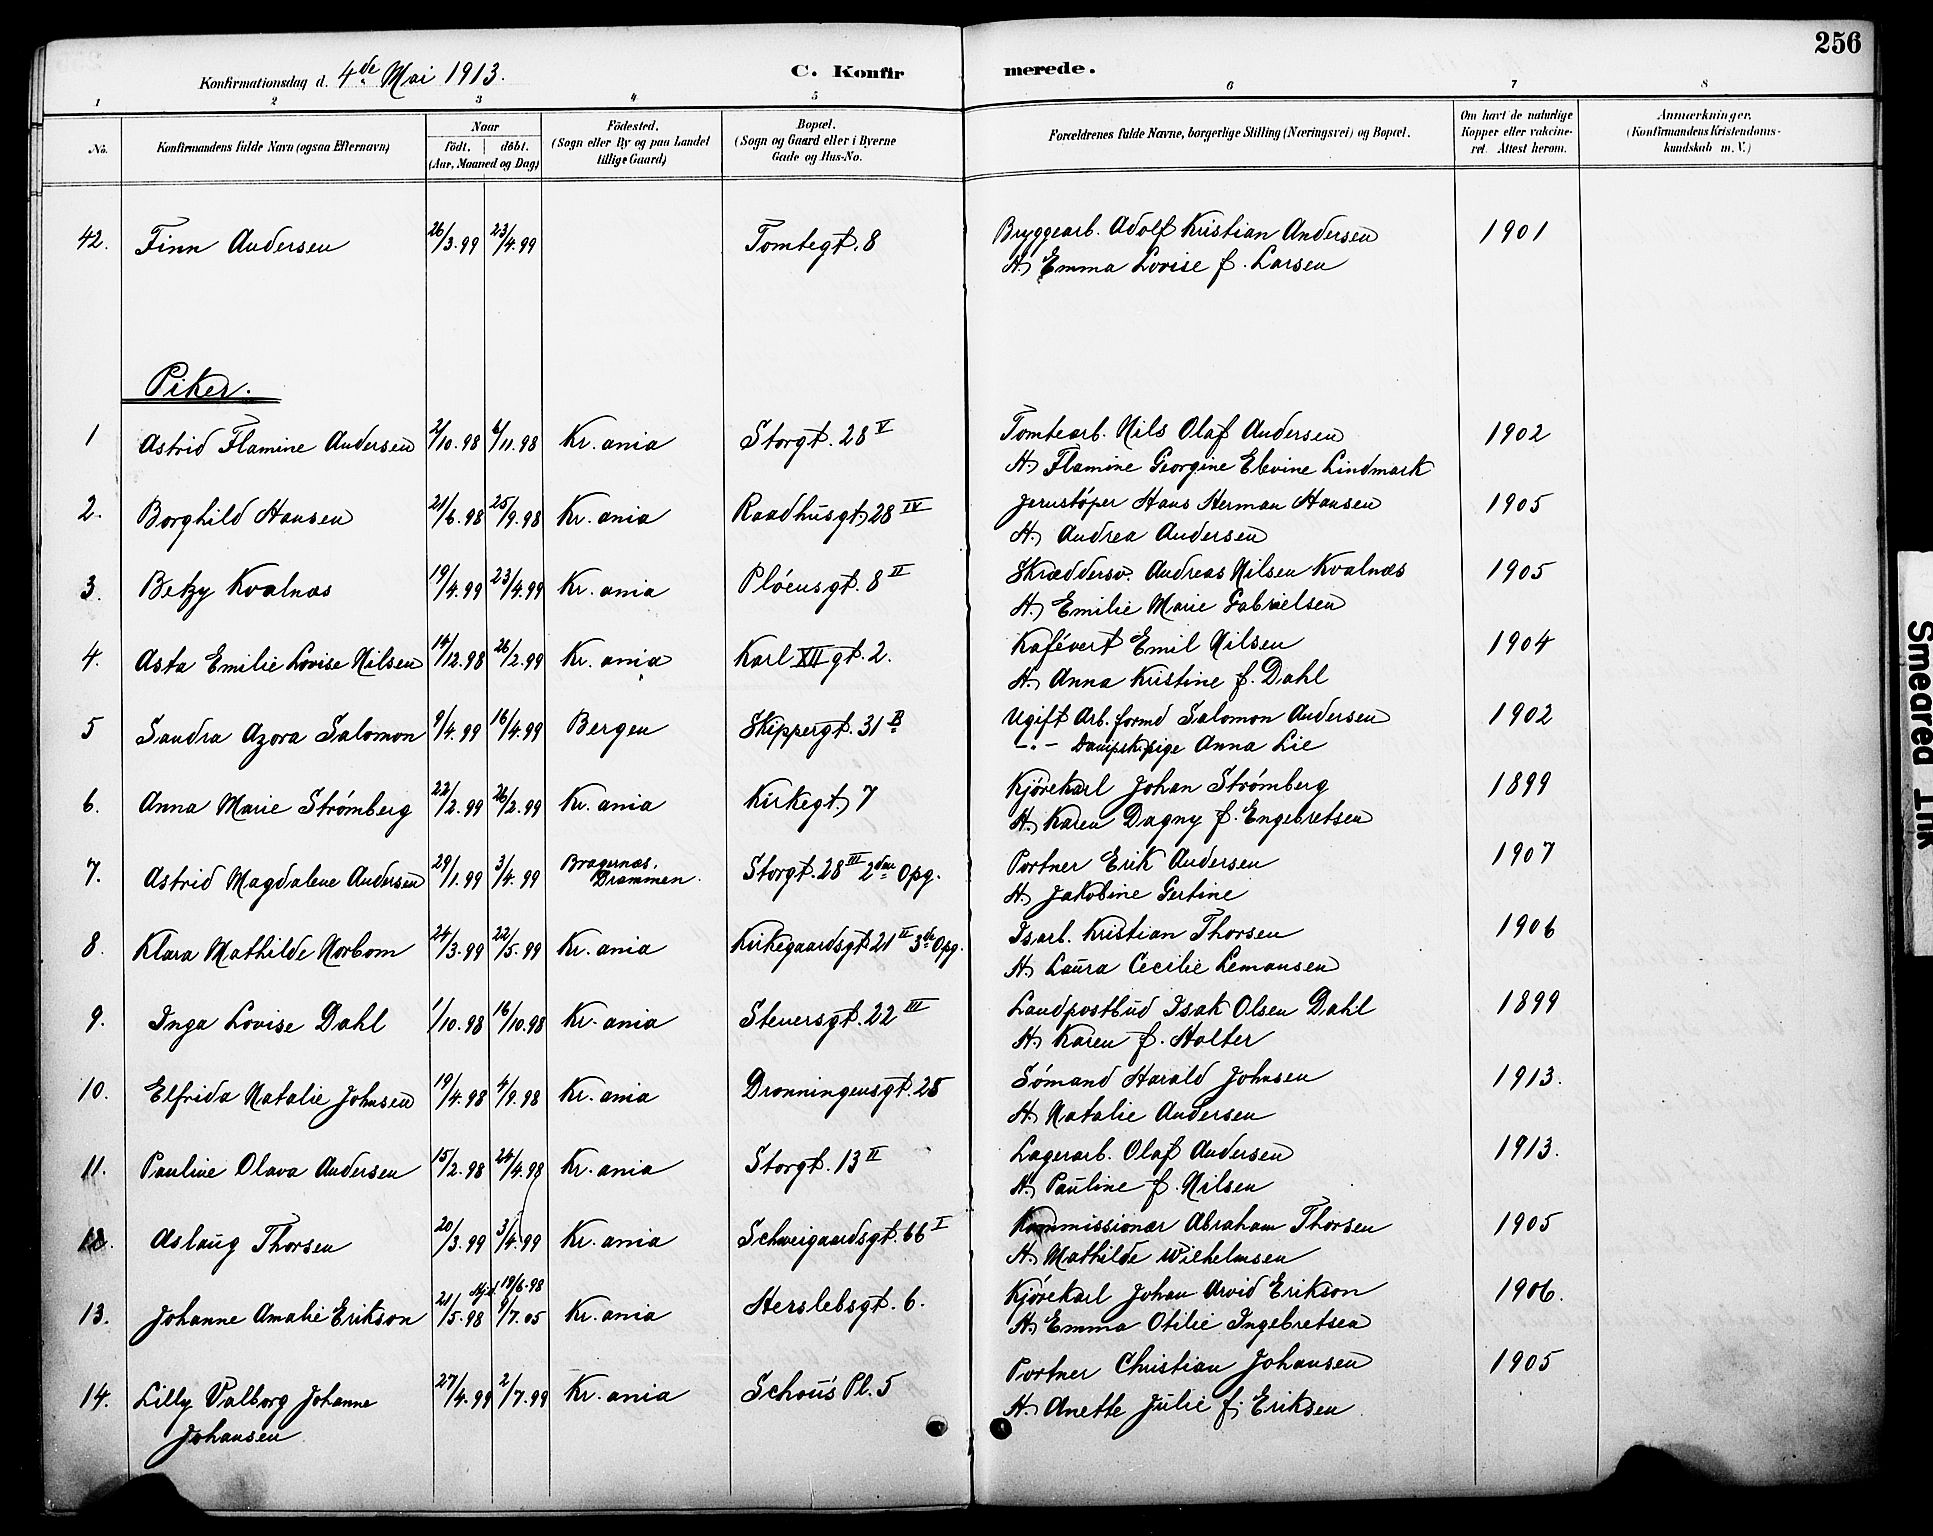 256
Konfirmationsdag d. 4de Mai 1913. C. Konfirmerede.
1 2 3 4 5 6 7 8
No. Konfirmandens fulde Navn (ogsaa Efternavn) Naar født. døbt. (Aar, Maaned og Dag) Fødested. (Sogn eller By og paa Landet tillige Gaard) Bopæl. (Sogn og Gaard eller i Byerne Gade og Hus-No. Forældrenes fulde Navne, borgerlige Stilling (Næringsvei) og Bopæl. Om havt de naturlige Kopper eller vakcineret. Attest herom. Anmærkninger. (Konfirmandens Kristendomskundskab m. V.)
42. Finn Andersen 26/3.99 23/4.99 Tomtegt. 8 Bryggearb. Adolf Kristian Andersen 1901
H. Emma Lovise f. Larsen
Piker.
1 Astrid Flamine Andersen 2/10.98 6/11.98 Kr.ania Storgt. 28 V Tomtearb. Nils Olaf Andersen 1902
H. Flamine Georgine Elevine Lindmark
2. Borghild Hansen 21/6.98 25/9.98 Kr.ania Raadhusgt. 28 IV Jernstöper Hans Herman Hansen 1905
H. Andrea Andersen
3. Betzy Kvalnæs 19/4.99 23/4.99 Kr.ania Plöensgt. 8 II Skræddersv. Andreas Nilsen Kvalnæs 1905
H. Emilie Marie Gabrielsen
4. Asta Emilie Lovise Nilsen 14/12.98 26/2.99 Kr.ania Karl XII gt. 2. Kafévert Emil Nilsen 1904
H. Anna Kristine f. Dahl
5 Sandra Azora Salomon 9/4.99 16/4.99 Bergen Skippergt. 31 B Ugift Arb.formd Salomon Andersen 1902
-.- Dampsk.pige Anna Lie
6. Anna Marie Strömberg 22/2.99 26/2.99 Kr.ania Kirkegt. 7 Kjörekarl Johan Strömberg 1899
H. Karen Dagny f. Engebretsen
7. Astrid Magdalene Andersen 29/1.99 3/4.99 Bragernæs, Drammen. Storgt. 28 III 2den Opg. Portner Erik Andersen 1907
H. Jakobine Gertine
8. Klara Mathilde Norbom 24/3.99 22/5.99 Kr.ania Kirkegaardsgt. 21 II 3de Opg. Isarb. Kristian Thorsen 1906
H. Laura Cecilie Lemansen
9. Inga Lovise Dahl 1/10.98 16/10.98 Kr.ania Stenersgt. 22 III Landpostbud Isak Olsen Dahl 1899
H. Karen f. Holter
10. Elfrida Natalie Johnsen 19/4.98 4/9.98 Kr.ania Dronningensgt. 25 Sömand Harald Johnsen 1913.
H. Natalie Andersen
11. Pauline Olava Andersen 15/2.98 24/4.98 Kr.ania Storgt. 13 II Lagerarb. Olaf Andersen 1913.
H. Pauline f. Nilsen
12. Aslaug Thorsen 20/3.99 3/4.99 Kr.ania Schweigaardsgt. 66 I Kommissionær Abraham Thorsen 1905
H. Mathilde Wilhelmsen
13. Johanne Amalie Erikson 21/5.98 Hjd. 19/6.98 9/7.05 Kr.ania Herslebsgt. 6. Kjörekarl Johan Arvid Erikson 1906.
H. Emma Otilie Ingebretsen
14. Lilly Valborg Johanne 27/4.99 2/7.99 Kr.ania Schous Pl. 5 Portner Christian Johansen 1905
Johansen H. Anette Julie f. Eriksen
Smeared Ink